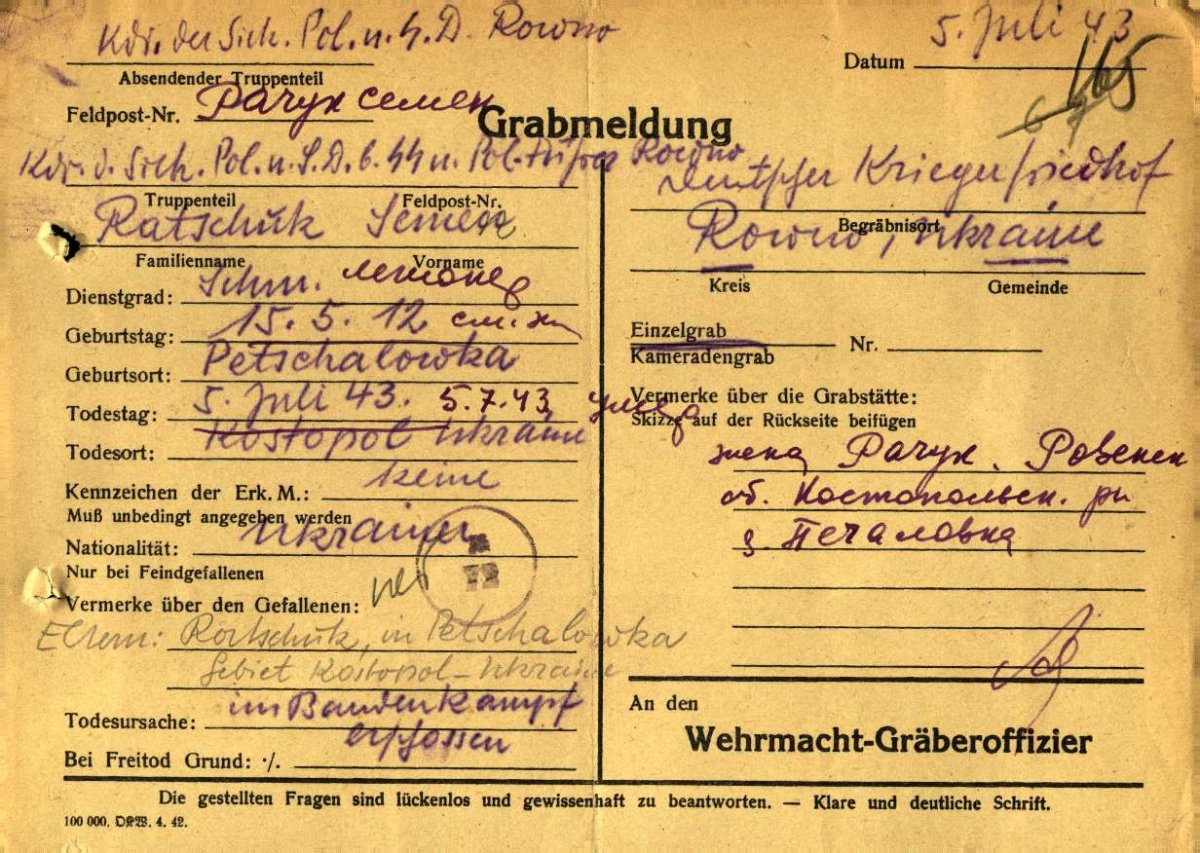 Kdr. der Sich. Pol. u. S. D. Rowno
Absendender Truppenteil
Feldpost-Nr. Рачук семен
Datum 5. Juli 43
165
Grabmeldung
Kdr. d. Sich. Pol. u. S. D. b. SS u. Pol. Rowno
Truppenteil Feldpost-Nr.
Ratschuk Semen
Familienname Vorname
Dienstgrad: Schm.
Geburtstag: 15. 5. 12
Geburtsort: Petschalowka
Todestag: 5. Juli 43. 5.7.43
Todesort: Kostopol Ukraine
Kennzeichen der Erk. M.: keine
Muß unbedingt angegeben werden
Nationalität: Ukrainer
Nur bei Feindgefallenen
Vermerke über den Gefallenen:
Eltern: in Petschalowka
Gebiet Kostopol - Ukraine
Todesursache: im Bandenkampf
erschossen
Bei Freitod Grund: ·/.
Deutscher Kriegerfriedhof
Begräbnisort
Rowno, Ukraine
Kreis Gemeinde
Einzelgrab
Kameradengrab
Nr.
Vermerke über die Grabstätte:
Skizze auf der Rückseite beifügen
жена Рачук. Ровенск
об. Костопольск. рн
Печаловка
An den
Wehrmacht-Gräberoffizier
Die gestellten Fragen sind lückenlos und gewissenhaft zu beantworten. — Klare und deutliche Schrift.
100 000. 4. 42.